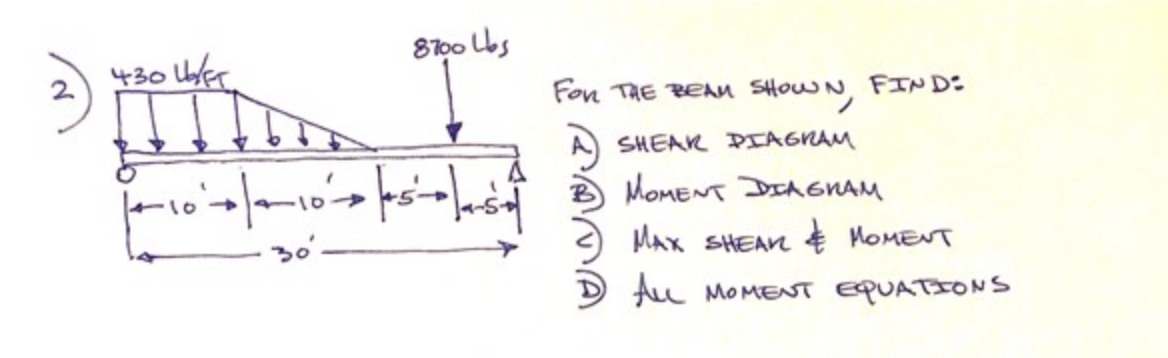 2)
430 Lb/FT
8700 Lbs
10' 10' 5' 5'
30'
FOR THE BEAM SHOWN, FIND:
A) SHEAR DIAGRAM
B) MOMENT DIAGRAM
C) MAX SHEAR & MOMENT
D) ALL MOMENT EQUATIONS